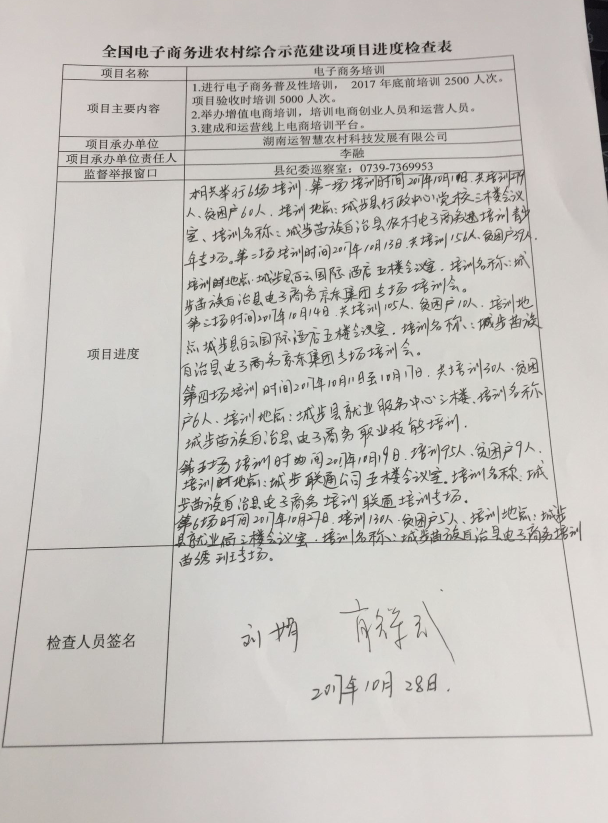 全国电子商务进农村综合示范建设项目进度检查表
项目名称
电子商务培训
项目主要内容
1.进行电子商务普及性培训， 2017 年底前培训 2500 人次。
项目验收时培训 5000 人次。
2.举办增值电商培训，培训电商创业人员和运营人员。
3.建成和运营线上电商培训平台。
项目承办单位
湖南运智慧农村科技发展有限公司
项目承办单位责任人
李融
监督举报窗口
县纪委巡察室：0739-7369953
项目进度
本月共举行6场培训，第一场培训时间2017年10月10日，共培训
人、贫困户60人，培训地点：城步县行政中心党校三楼会议
室、培训名称：城步苗族自治县农村电子商务培训青少
年专场。第二场培训时间2017年10月13日，共培训156人、贫困户39人，
培训地点：城步县白云国际酒店五楼会议室，培训名称：城
步苗族自治县电子商务京东集团专场培训会。
第三场时间2017年10月14日，共培训105人、贫困户10人，培训地
点：城步县白云国际酒店五楼会议室，培训名称：城步苗族
自治县电子商务京东集团专场培训会。
第四场培训时间2017年10月11日至10月17日，共培训30人、贫困
户6人，培训地点：城步县就业服务中心三楼、培训名称
城步苗族自治县电子商务职业技能培训。
第五场培训时间2017年10月19日，培训95人、贫困户9人，
培训地点：城步联通公司五楼会议室。培训名称：城
步苗族自治县电子商务培训联通培训专场。
第6场时间2017年10月27日，培训130人、贫困户5人、培训地点：城步
县就业局三楼会议室，培训名称：城步苗族自治县电子商务培训
苗绣班专场。
检查人员签名
刘
2017年10月28日.